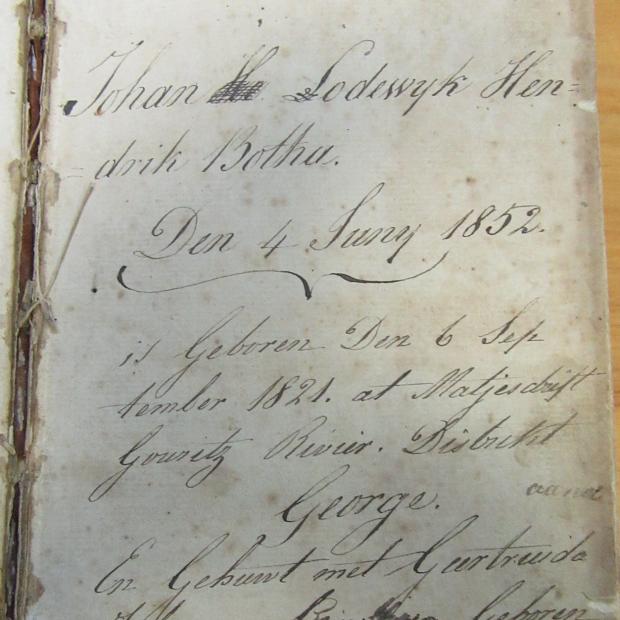 Johan Lodewyk Hen=
=drik Botha.
Den 4 Juny 1852.
is Geboren Den 6 Sep
tember 1821. at Matjesdrift
Gouritz Rivier. Distrikt
George.
En Gehuwt met Geertruida
Geboren